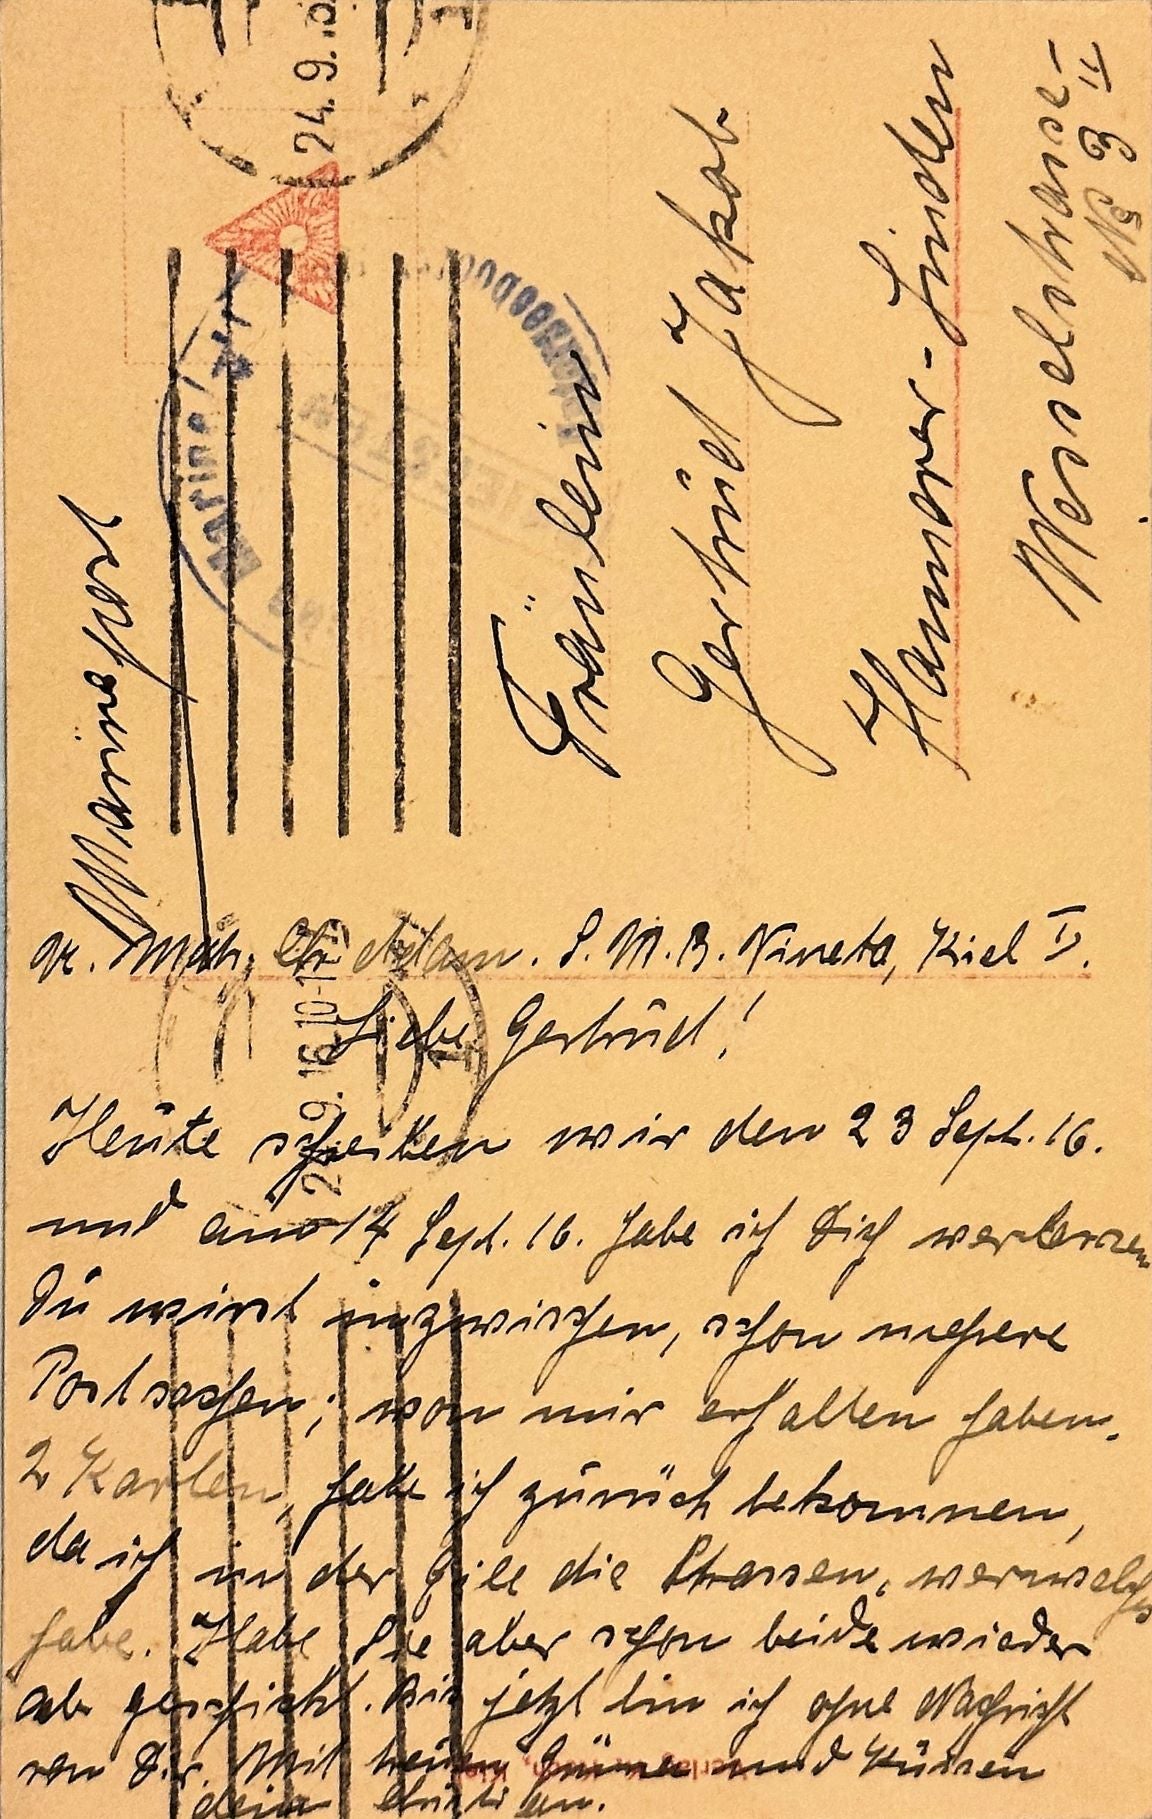 Marinepost
Fräulein
Gertrüd Jakob
Hannover-Linden
Wesselstrasse
№ 9 II
24. 9.
Marine
24.9.16.10-11
Chr. Adam. S. M. B. Nineta, Kiel II.
Liebe Gertrüd!
Heüte schreiben wir den 23 Sept. 16.
und am 14 Sept. 16. habe ich Dich verlassen
Dü wirst inzwischen, schon mehere
Postsachen; von mir erhalten haben.
2 Karten, habe ich zürück bekommen,
da ich in der Eile die Strassen, verwechselt
habe. Habe Sie aber schon beide wieder
ab geschickt. Bis jetzt bin ich ohne Nachricht
von Dir. Mit treüen Grüssen und Küssen
dein Christian.